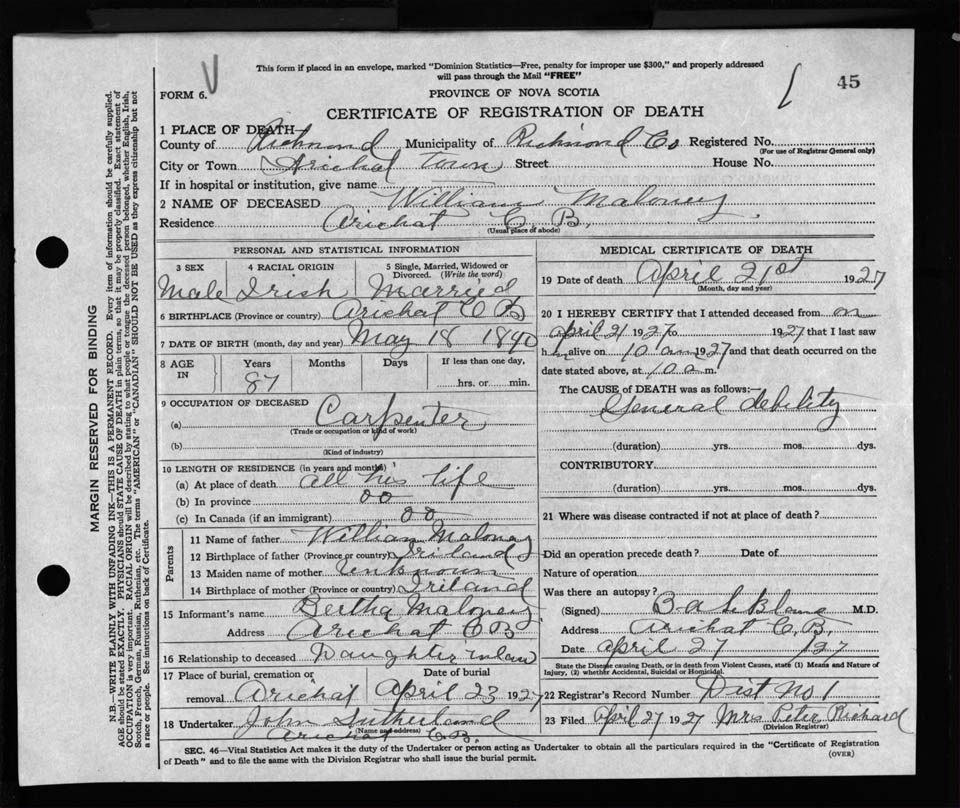 This form if placed in an envelope, marked "Dominion Statistics—Free, penalty for improper use $300," and properly addressed
will pass through the Mail "FREE"
45
FORM 6.
PROVINCE OF NOVA SCOTIA
CERTIFICATE OF REGISTRATION OF DEATH
1 PLACE OF DEATH—
County of Richmond Municipality of Richmond Co Registered No.
(For use of Registrar General only)
City or Town Arichat Town Street House No.
If in hospital or institution, give name
2 NAME OF DECEASED William Maloney
Residence Arichat C B.
(Usual place of abode)
PERSONAL AND STATISTICAL INFORMATION
3 SEX 4 RACIAL ORIGIN 5 Single, Married, Widowed or Divorced. (Write the word)
Male Irish Married
6 BIRTHPLACE (Province or country) Arichat C B
7 DATE OF BIRTH (month, day and year) May 18 1840
8 AGE IN Years Months Days If less than one day,
87 hrs. or min.
9 OCCUPATION OF DECEASED
(a) Carpenter
(Trade or occupation or kind of work)
(b)
(Kind of industry)
10 LENGTH OF RESIDENCE (in years and months)
(a) At place of death all his life
(b) In province 00
(c) In Canada (if an immigrant) 00
Parents
11 Name of father William Maloney
12 Birthplace of father (Province or country) Iriland
13 Maiden name of mother Unknown
14 Birthplace of mother (Province or country) Iriland
15 Informant's name Bertha Maloney
Address Arichat C B
16 Relationship to deceased Daughter inlaw
17 Place of burial, cremation or removal Arichat Date of burial April 23 1927
18 Undertaker John Sutherland
(Name and address)
Arichat C.B.
MEDICAL CERTIFICATE OF DEATH
19 Date of death April 21st 1927
(Month, day and year)
20 I HEREBY CERTIFY that I attended deceased from on
April 21 1927 to 1927 that I last saw
h alive on 10 am 1927 and that death occurred on the
date stated above, at 10 a m.
The CAUSE of DEATH was as follows:—
General debility
(duration) yrs. mos. dys.
CONTRIBUTORY
(duration) yrs. mos. dys.
21 Where was disease contracted if not at place of death?
Did an operation precede death? Date of
Nature of operation
Was there an autopsy?
(Signed) M.D.
Address Arichat C.B.
Date April 27 / 27
State the Disease causing Death, or in death from Violent Causes, state (1) Means and Nature of
Injury, (2) whether Accidental, Suicidal or Homicidal.
22 Registrar's Record Number Dist No 1
23 Filed April 27 1927 Mrs Peter Richard
(Division Registrar)
SEC. 46—Vital Statistics Act makes it the duty of the Undertaker or person acting as Undertaker to obtain all the particulars required in the "Certificate of Registration
of Death" and to file the same with the Division Registrar who shall issue the burial permit.
(OVER)
MARGIN RESERVED FOR BINDING
N.B.—WRITE PLAINLY WITH UNFADING INK—THIS IS A PERMANENT RECORD. Every item of information should be carefully supplied.
AGE should be stated EXACTLY. PHYSICIANS should STATE CAUSE OF DEATH in plain terms, so that it may be properly classified. Exact statement of
OCCUPATION is very important. RACIAL ORIGIN will be described by stating to what people or tongue the deceased person belonged, whether English, Irish,
Scotch, French, German, Russian, Ruthenian, etc. The terms "AMERICAN" or "CANADIAN" SHOULD NOT BE USED as they express citizenship but not
a race or people. See instructions on back of Certificate.